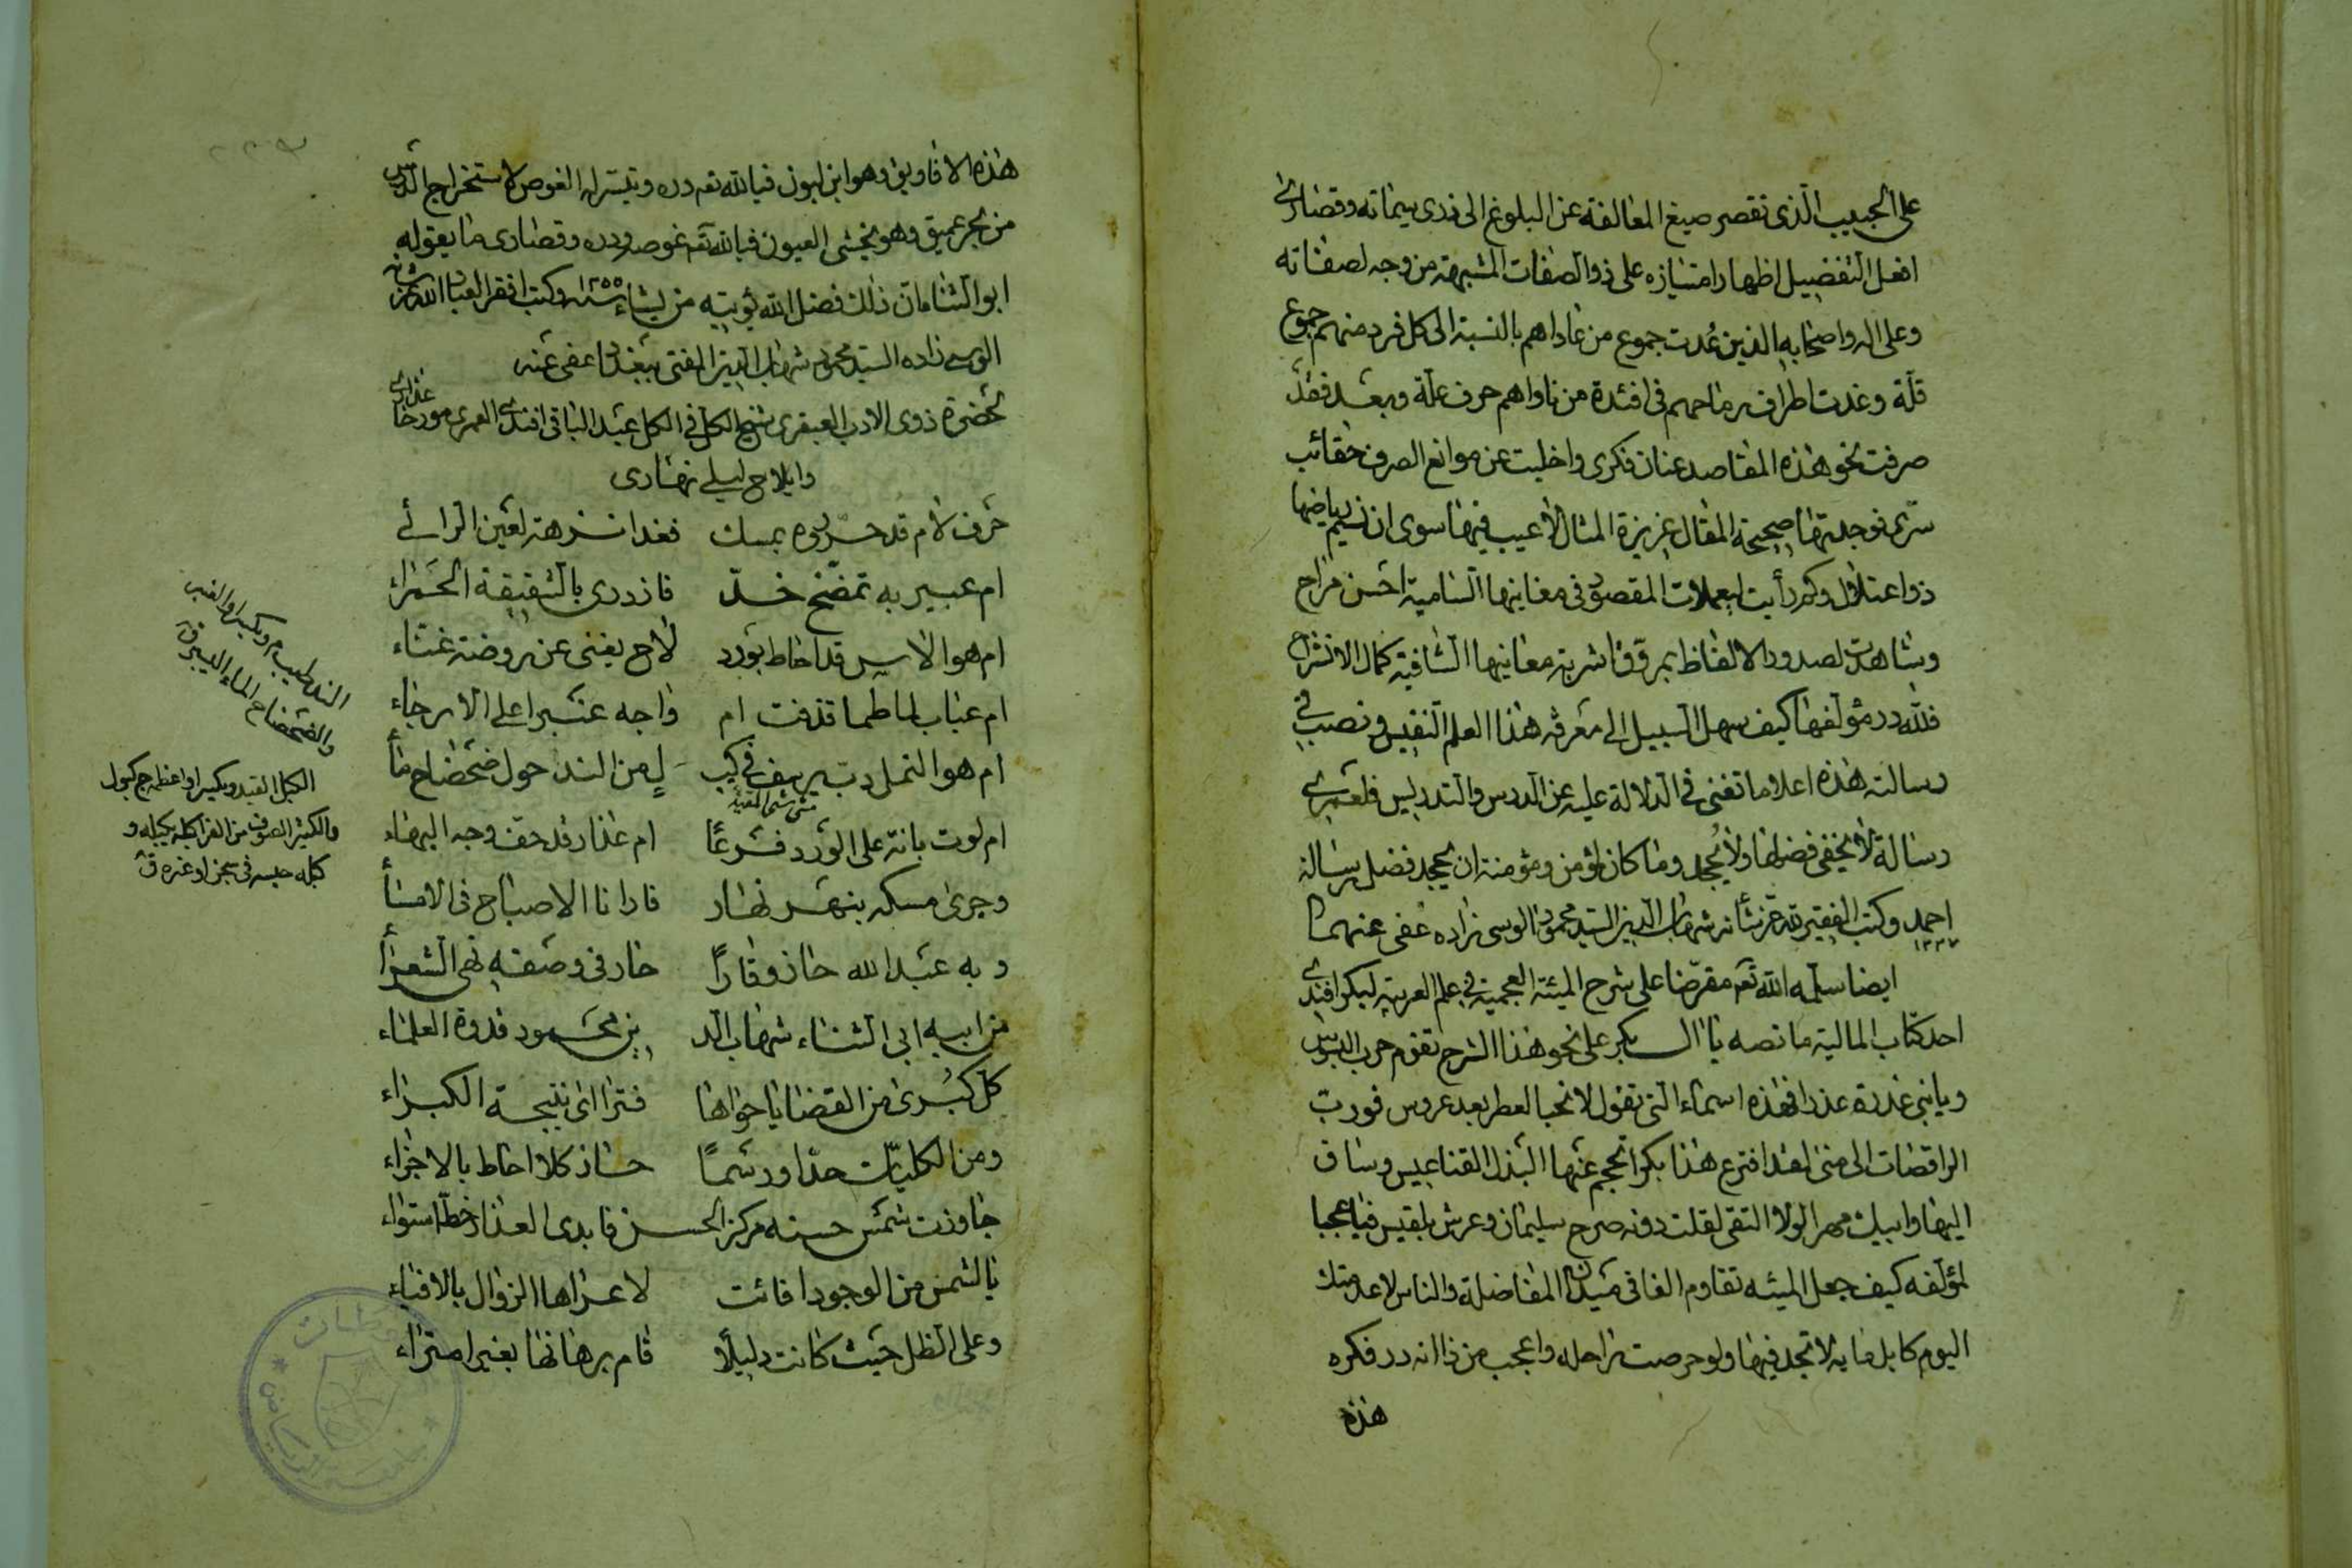 على الحبيب الذي تقصر صيغ المغالفة عن البلوغ الى ذرى سماته وقصارى
افعل التفضيل اظهار امتيازه على ذوالصفات المشبهة من وجه لصفاته
وعلى اله واصحابه الذين عُدت جموع من عاداهم بالنسبة الى كل فرد منهم جموع
قلة وغدت اطراف رماحهم في افئدة من ناواهم حرف علة وبعد فقد
صرفت نحو هذه المقاصد عنان فكري واخليت عن موانع الصرف حقائب
سرى فوجدتها صحيحة المقال عزيزة المثال لا عيب فيها سوى ان نسيم رياضها
ذو اعتلال وكم رأيت لجملات المقصود في مغانيها السامية احسن مراح
وشاهدت لصدور الالفاظ بمروق اشربة معانيها الشافية كمال الانشراح
فلله در مؤلفها كيف سهل السبيل الى معرفة هذا العلم النفيس ونصب في
رسالته هذه اعلاما تغني في الدلالة عليه عن الدرس والتدريس فلعمري
رسالة لا يخفى فضلها ولا يُجحد وما كان لمؤمن ومؤمنة ان يجحد فضل رسالة
احمد وكتب الفقير لله عز شأنه شهاب الدين السيد محمود الوسى زاده عُفى عنهما
١٢٣٧
ايضا سلمه الله تعم مقرضا على شرح المئة العجمية في علم العربية لبكر افندي
احد كتاب المالية ما نصه يا ال بكر على نحو هذا الشرح تقوم حرب البسوس
ويا بني عذرة عذرا فهذه اسماء التي تقول لا نحبا لعطر بعد عروس فورب
الراقصات الى منى لقد افترع هذا بكرا تحجم عنها البذل القناعيس وساق
اليها وابيك مهر الولا التقى لقلت دونه صرح سليمان وعرش بلقيس فيا عجبا
لمؤلفه كيف جعل المئيه تقاوم الفا في ميدان المفاضلة والناس لا عدمتك
اليوم كابل مايه لا تجد فيها ولو حرصت راحله واعجب من ذا انه در فكره
هذه
هذه الافاويق وهو ابن لبون فيا لله تعم دره وتيسر له الغوص لاستخراج الدر
من بحر عميق وهو يخشى العيون فيا لله تعم غوصه ودره وقصارى ما يقوله
ابو الثنا مان ذلك فضل الله يؤتيه من يشاء سنه ١٢٥٥ وكتب افقر العباد الله عز شانه
الوسى زاده السيد محمود شهاب الدين المفتى ببغداد عفى عنه
لحضرة ذوى الادب العبقرى شيخ الكل في الكل عبد الباقى افندى العمرى مورخا عذارى
وايلاج ليلي نهارى
حرف لام قد حرروه بمسك فغدا نزهة لعين الرائى
ام عبير به تمضخ خد فازدرى بالشقيقة الحمراء
ام هو الاس قد احاط بورد لاح يغنى عن روضة غناء
ام عباب لما طما قذفت ام واجه عنبرا على الارجاء
ام هو النمل دب يرسف في كب ل من الند حول ضحضاح ماأ
مشى مشى المقيد
ام لوت بانة على الورد فرعًا ام عذار قد حف وجه البهاء
وجرى مسكه بنهر نهار فارانا الاصباح فى الامسأ
وبه عبد الله حاز وقارًا حار فى وصفه نهى الشعرأ
من ابيه ابى الثناء شهاب الد ين محمود قدوة العلماء
كل كبرى من القضايا حواها فترااى نتيجة الكبراء
ومن الكليات حدا ورسمًا حاز كلا احاط بالاجزاء
جاوزت شمس حسنه مركز الحسن فابدى العذار خط استواء
يا لشمس من الوجود افائت لا عراها الزوال بالافياء
وعلى الظل حيث كانت دليلًا قام برهانها بغير امتراء
الند طيب م ويكسر او العنبر
والضحضاح الماء اليسير ق
الكبل القيد ويكسر او اعظمه ج كبول
والكثير الصوف من الفرا كبله يكبله و
كبله حبسه في سجن او غيره ق